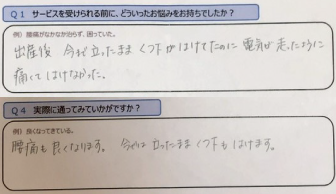 Q1 サービスを受けられる前に、どういったお悩みをお持ちでしたか？
例）腰痛がなかなか治らず、困っていた。
出産後 今まで立ったまま くつ下がはけてたのに 電気が走ったように
痛くてはけなかった。
Q4 実際に通ってみていかがですか？
例）良くなってきている。
腰痛も良くなります。 今では立ったまま くつ下もはけます。